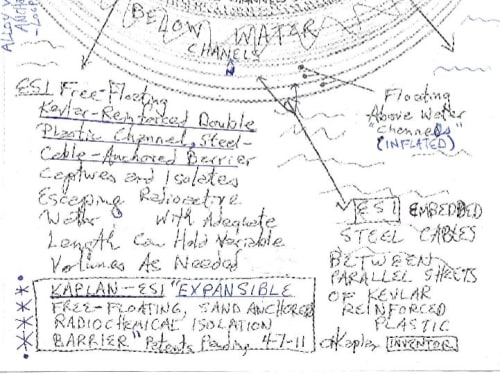 BELOW WATER
CHANELS
ESI Free-Floating
Kevlar-Reinforced Double
Plastic Channel, Steel-
Cable-Anchored Barrier
Captures and Isolates
Escaping Radioactive
Water With Adequate
Length Can Hold Variable
Volumes As Needed
Floating
Above Water
"Channels"
(INFLATED)
ESI EMBEDDED
STEEL CABLES
BETWEEN
PARALLEL SHEETS
OF KEVLAR
REINFORCED
PLASTIC
KAPLAN-ESI "EXPANSIBLE
FREE-FLOATING, SAND ANCHORED
RADIOCHEMICAL ISOLATION
BARRIER" Patents Pending 4-7-11 Kaplan INVENTOR